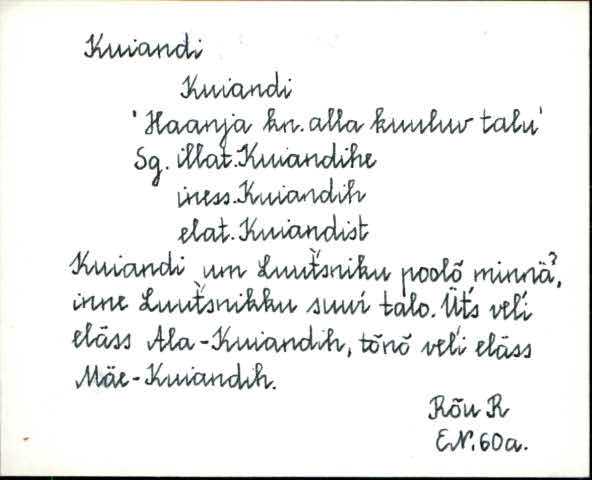 Kuiandi
Kuiandi
'Haanja kn. alla kuuluv talu'
Sg. illat. Kuiandihe
iness. Kuiandih
elat. Kuiandist
Kuiandi um Luut̆sniku poolõ minnä?,
inne Luut̆snikku suuŕ talo. Üt́s veĺi
eläss Ala-Kuiandih, tõnõ veĺi eläss
Mäe-Kuiandih.
Rõu R
EN. 60 a.